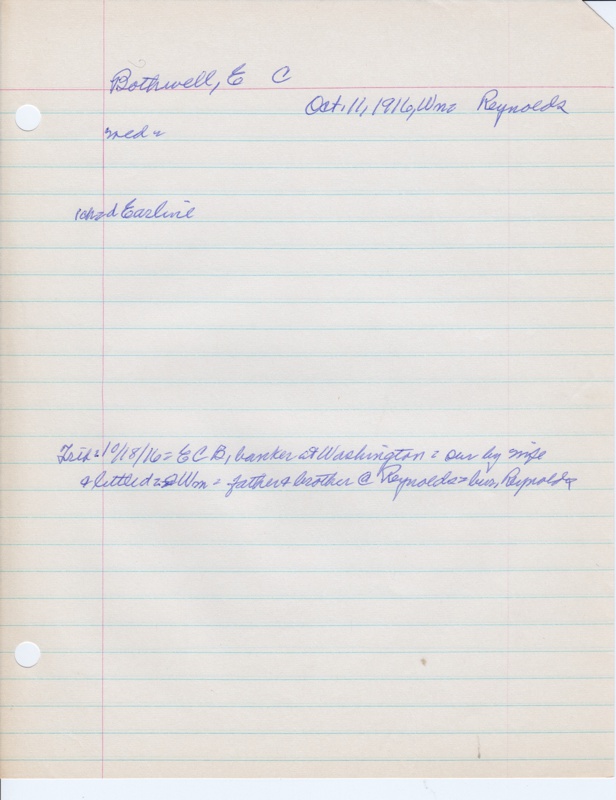 Bothwell, E C
Oct. 11, 1916, Wm= Reynolds
med=
1ch=d Earline
Trib=10/18/16= E C B, banker at Washington = sur by wife
& little d= Wm = father & brother @ Reynolds= bur, Reynolds